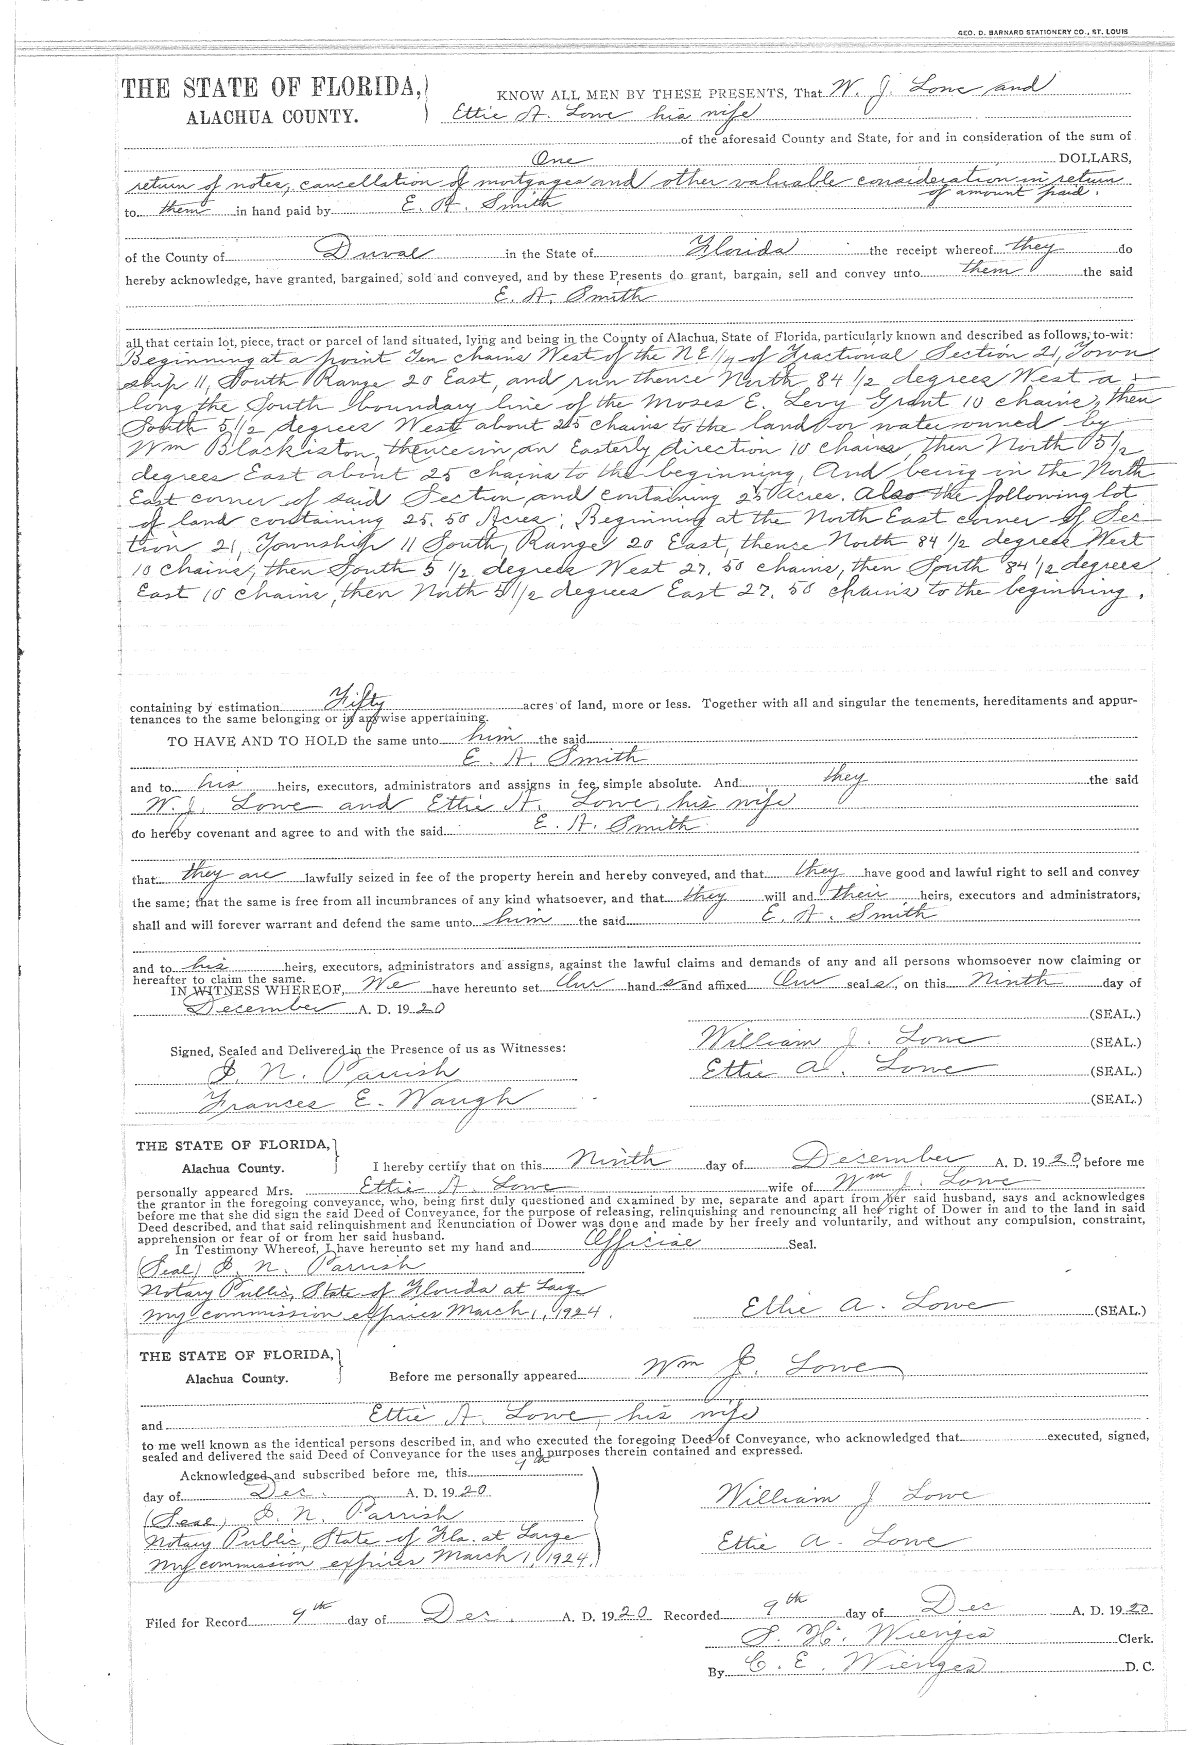 GEO. D. BARNARD STATIONERY CO., ST. LOUIS
THE STATE OF FLORIDA,
ALACHUA COUNTY.
KNOW ALL MEN BY THESE PRESENTS, That W. J. Lowe and
Ettie A. Lowe his wife
of the aforesaid County and State, for and in consideration of the sum of
One DOLLARS,
return of notes, cancellation of mortgages and other valuable consideration in return
of amount paid.
to them in hand paid by E. A. Smith
of the County of Duval in the State of Florida the receipt whereof they do
hereby acknowledge, have granted, bargained, sold and conveyed, and by these Presents do grant, bargain, sell and convey unto them the said
E. A. Smith
all that certain lot, piece, tract or parcel of land situated, lying and being in the County of Alachua, State of Florida, particularly known and described as follows, to-wit:
Beginning at a point Ten chains West of the NE 1/4 of Fractional Section 21, Town
ship 11, South Range 20 East, and run thence North 84 1/2 degrees West a-
long the South boundary line of the Moses E. Levy Grant 10 chains, then
South 5 1/2 degrees West about 25 chains to the land or water owned by
Wm Blackiston, thence in an Easterly direction 10 chains, then North 5 1/2
degrees East about 25 chains to the beginning, And being in the North
East corner of said Section and containing 25 acres. Also the following lot
of land containing 25.50 Acres; Beginning at the North East corner of Sec-
tion 21, Township 11 South, Range 20 East, thence North 84 1/2 degrees West
10 chains, then South 5 1/2 degrees West 27.50 chains, then South 84 1/2 degrees
East 10 chains, then North 5 1/2 degrees East 27.50 chains to the beginning.
containing by estimation Fifty acres of land, more or less. Together with all and singular the tenements, hereditaments and appur-
tenances to the same belonging or in anywise appertaining.
TO HAVE AND TO HOLD the same unto him the said
E. A. Smith
and to his heirs, executors, administrators and assigns in fee simple absolute. And they the said
W. J. Lowe and Ettie A. Lowe, his wife
do hereby covenant and agree to and with the said E. A. Smith
that they are lawfully seized in fee of the property herein and hereby conveyed, and that they have good and lawful right to sell and convey
the same; that the same is free from all incumbrances of any kind whatsoever, and that they will and their heirs, executors and administrators,
shall and will forever warrant and defend the same unto him the said E. A. Smith
and to his heirs, executors, administrators and assigns, against the lawful claims and demands of any and all persons whomsoever now claiming or
hereafter to claim the same.
IN WITNESS WHEREOF, We have hereunto set Our hand s and affixed Our seal s, on this Ninth day of
December A. D. 1920
(SEAL.)
Signed, Sealed and Delivered in the Presence of us as Witnesses:
William J. Lowe (SEAL.)
I. N. Parrish
Ettie A. Lowe (SEAL.)
Frances E. Waugh
(SEAL.)
THE STATE OF FLORIDA,
Alachua County.
I hereby certify that on this Ninth day of December A. D. 1920, before me
personally appeared Mrs. Ettie A. Lowe wife of Wm J. Lowe
the grantor in the foregoing conveyance, who, being first duly questioned and examined by me, separate and apart from her said husband, says and acknowledges
before me that she did sign the said Deed of Conveyance, for the purpose of releasing, relinquishing and renouncing all her right of Dower in and to the land in said
Deed described, and that said relinquishment and Renunciation of Dower was done and made by her freely and voluntarily, and without any compulsion, constraint,
apprehension or fear of or from her said husband.
In Testimony Whereof, I have hereunto set my hand and Official Seal.
(Seal) I. N. Parrish
Notary Public, State of Florida at Large
my commission expires March 1, 1924.
Ettie A. Lowe (SEAL.)
THE STATE OF FLORIDA,
Alachua County.
Before me personally appeared Wm J. Lowe
and Ettie A. Lowe, his wife
to me well known as the identical persons described in, and who executed the foregoing Deed of Conveyance, who acknowledged that executed, signed,
sealed and delivered the said Deed of Conveyance for the uses and purposes therein contained and expressed.
Acknowledged and subscribed before me, this 9th
day of Dec. A. D. 1920
(Seal) I. N. Parrish
Notary Public, State of Fla. at Large
my commission expires March 1, 1924.
William J Lowe
Ettie A. Lowe
Filed for Record 9th day of Dec. A. D. 1920 Recorded 9th day of Dec A. D. 1920
S. H. Wienges Clerk.
By C. E. Wienges D. C.